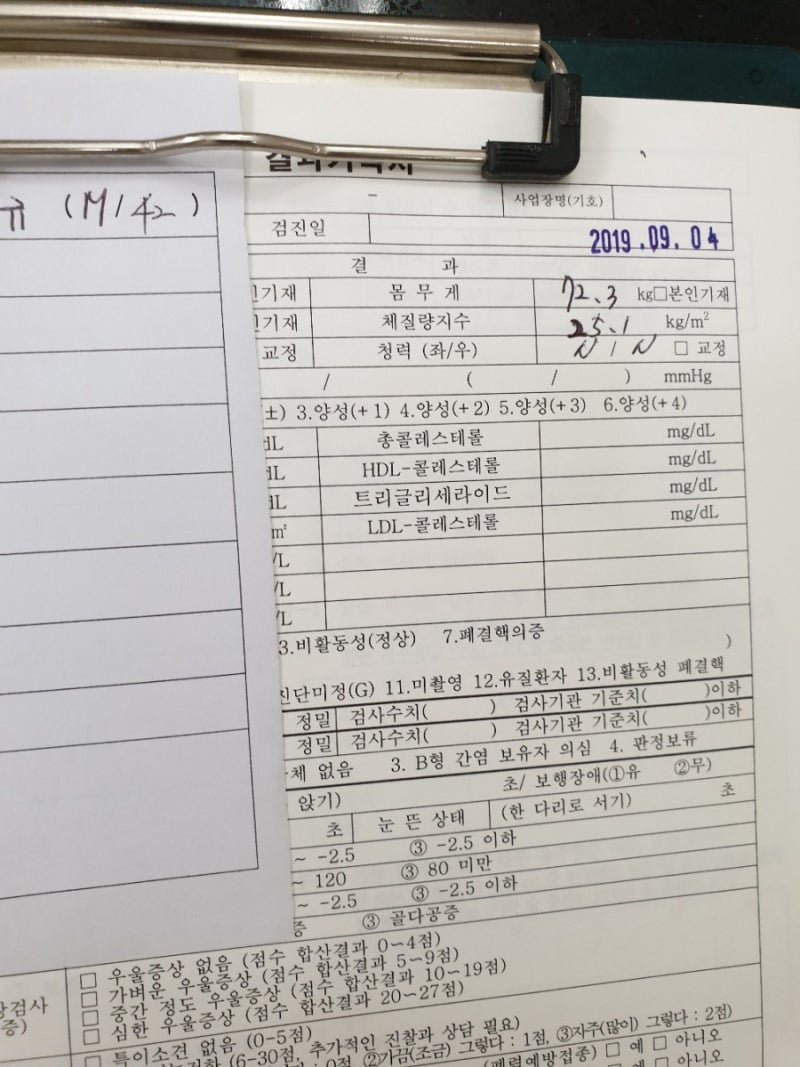 결과기록지
유 (M/42)
사업장명(기호)
검진일 2019.09.04
결 과
인기재 몸 무 게 72.3 kg□본인기재
인기재 체질량지수 25.1 kg/m²
교정 청력 (좌/우) N / N □ 교정
/ ( / ) mmHg
(±) 3.양성(+1) 4.양성(+2) 5.양성(+3) 6.양성(+4)
dL 총콜레스테롤 mg/dL
dL HDL-콜레스테롤 mg/dL
dL 트리글리세라이드 mg/dL
m² LDL-콜레스테롤 mg/dL
/L
/L
/L
3.비활동성(정상) 7.폐결핵의증
)
진단미정(G) 11.미촬영 12.유질환자 13.비활동성 폐결핵
정밀 검사수치( ) 검사기관 기준치( )이하
정밀 검사수치( ) 검사기관 기준치( )이하
체 없음 3. B형 간염 보유자 의심 4. 판정보류
앉기) 초/ 보행장애(①유 ②무)
초 눈 뜬 상태 (한 다리로 서기) 초
~ -2.5 ③ -2.5 이하
~ 120 ③ 80 미만
~ -2.5 ③ -2.5 이하
증 ③ 골다공증
□ 우울증상 없음 (점수 합산결과 0~4점)
□ 가벼운 우울증상 (점수 합산결과 5~9점)
상검사 □ 중간 정도 우울증상 (점수 합산결과 10~19점)
증) □ 심한 우울증상 (점수 합산결과 20~27점)
□ 특이소견 없음 (0-5점)
(6-30점, 추가적인 진찰과 상담 필요)
: 0점, ②가끔(조금) 그렇다 : 1점, ③자주(많이) 그렇다 : 2점)
(폐렴예방접종) □ 예 □ 아니오
□ 예 □ 아니오